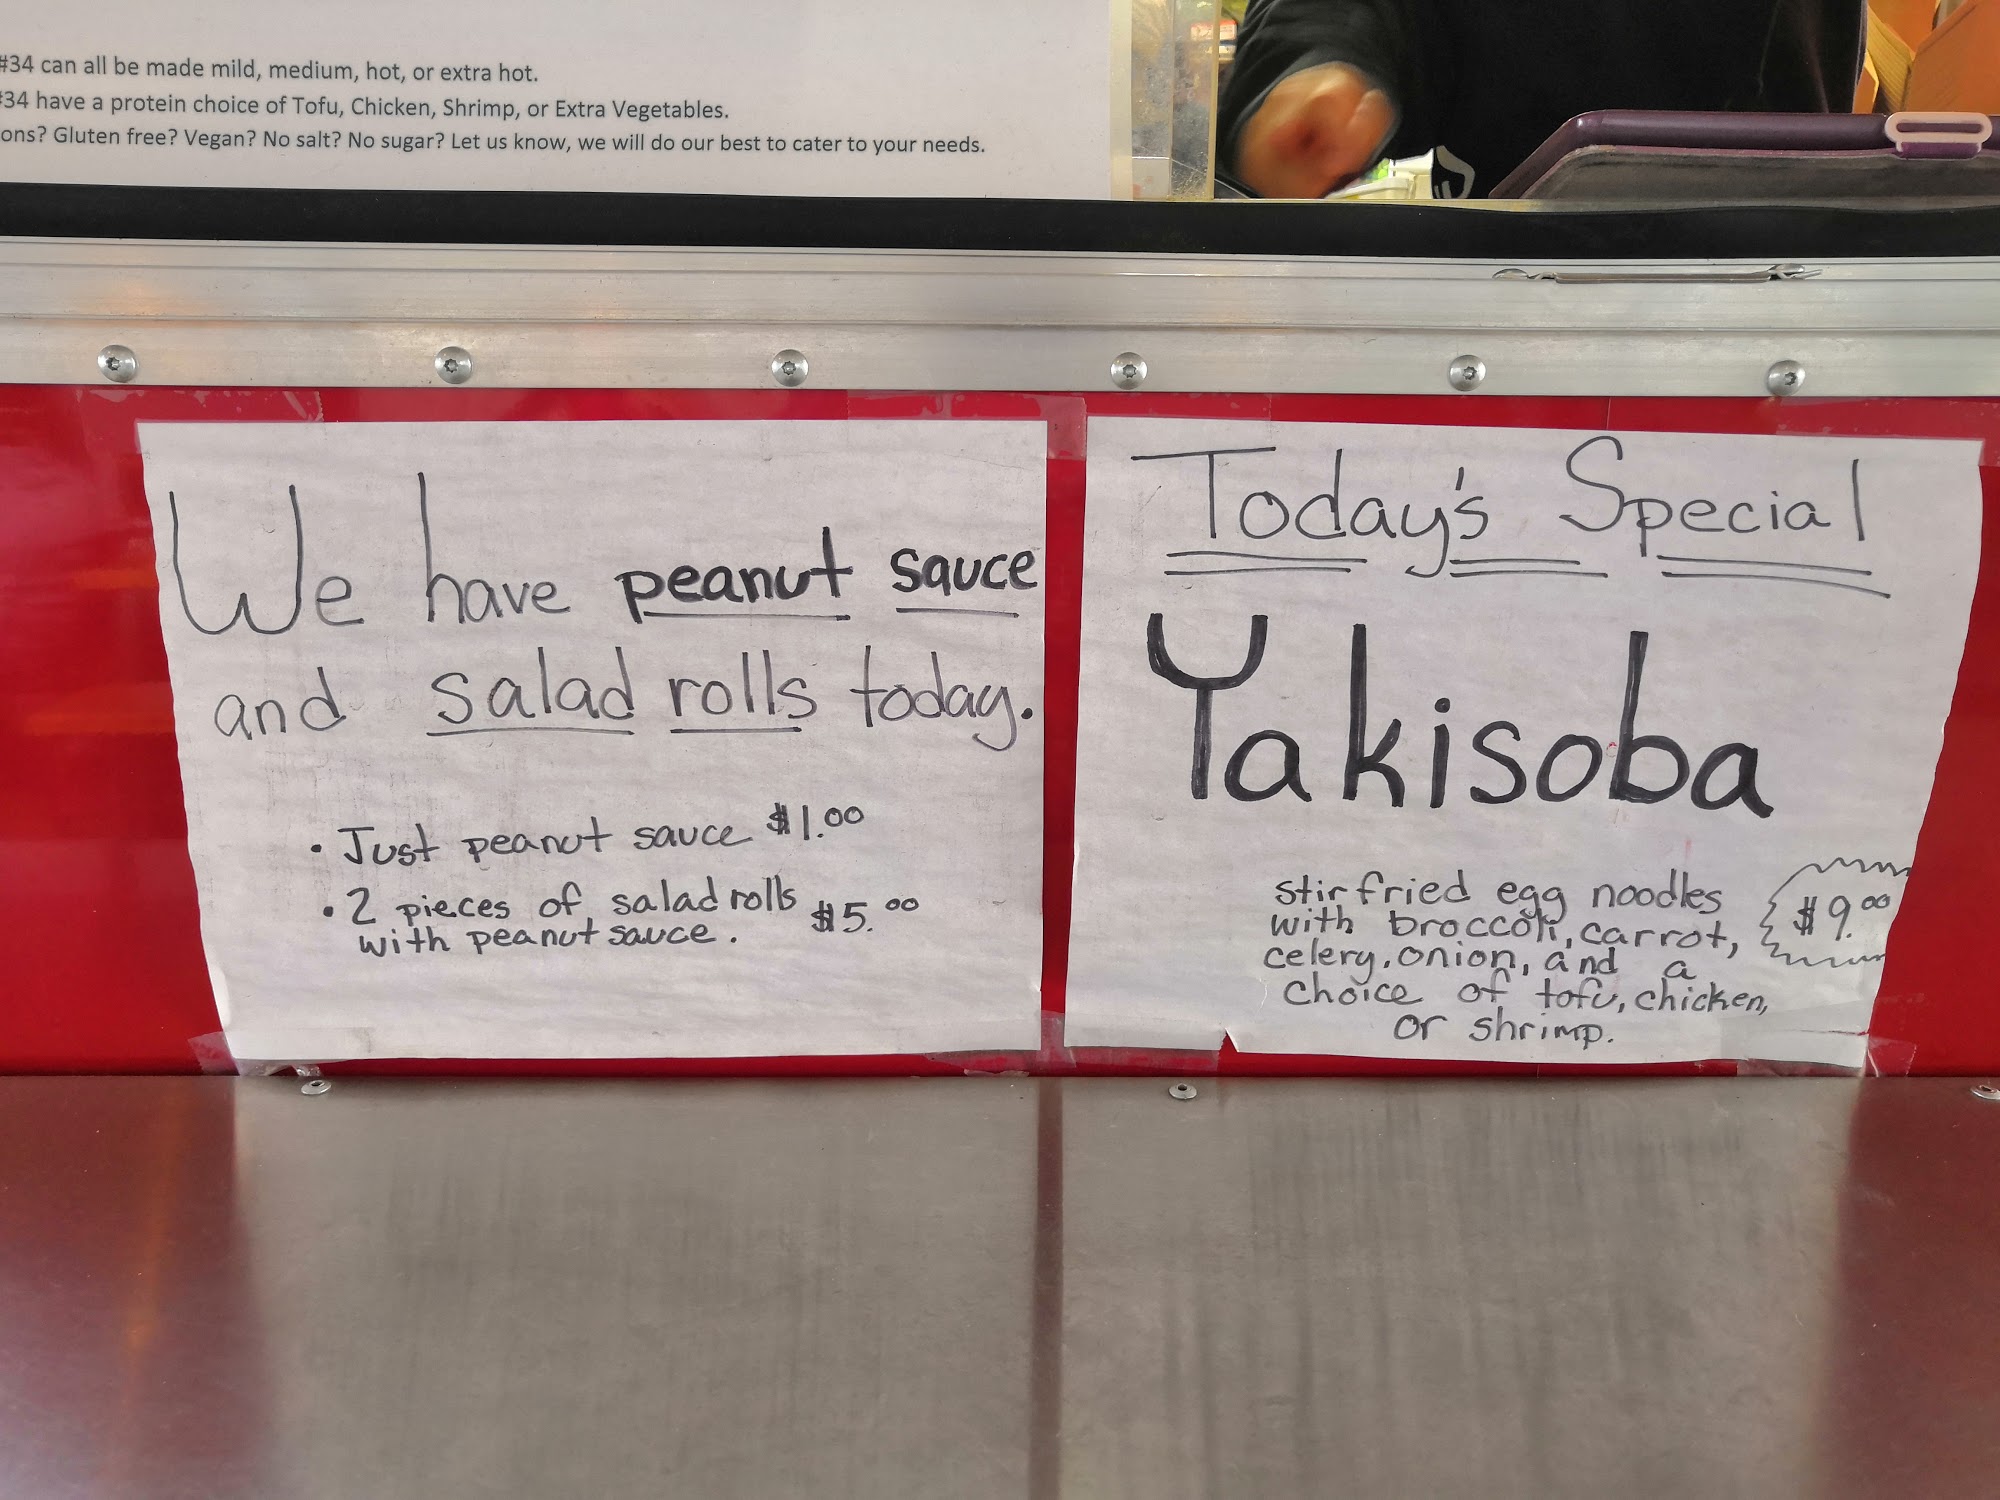 #34 can all be made mild, medium, hot, or extra hot.
#34 have a protein choice of Tofu, Chicken, Shrimp, or Extra Vegetables.
ons? Gluten free? Vegan? No salt? No sugar? Let us know, we will do our best to cater to your needs.
We have peanut sauce
and salad rolls today.
• Just peanut sauce $1.00
• 2 pieces of salad rolls $5.00
with peanut sauce.
Today's Special
Yakisoba
stir fried egg noodles
with broccoli, carrot,
celery, onion, and a
choice of tofu, chicken,
or shrimp.
$9.00